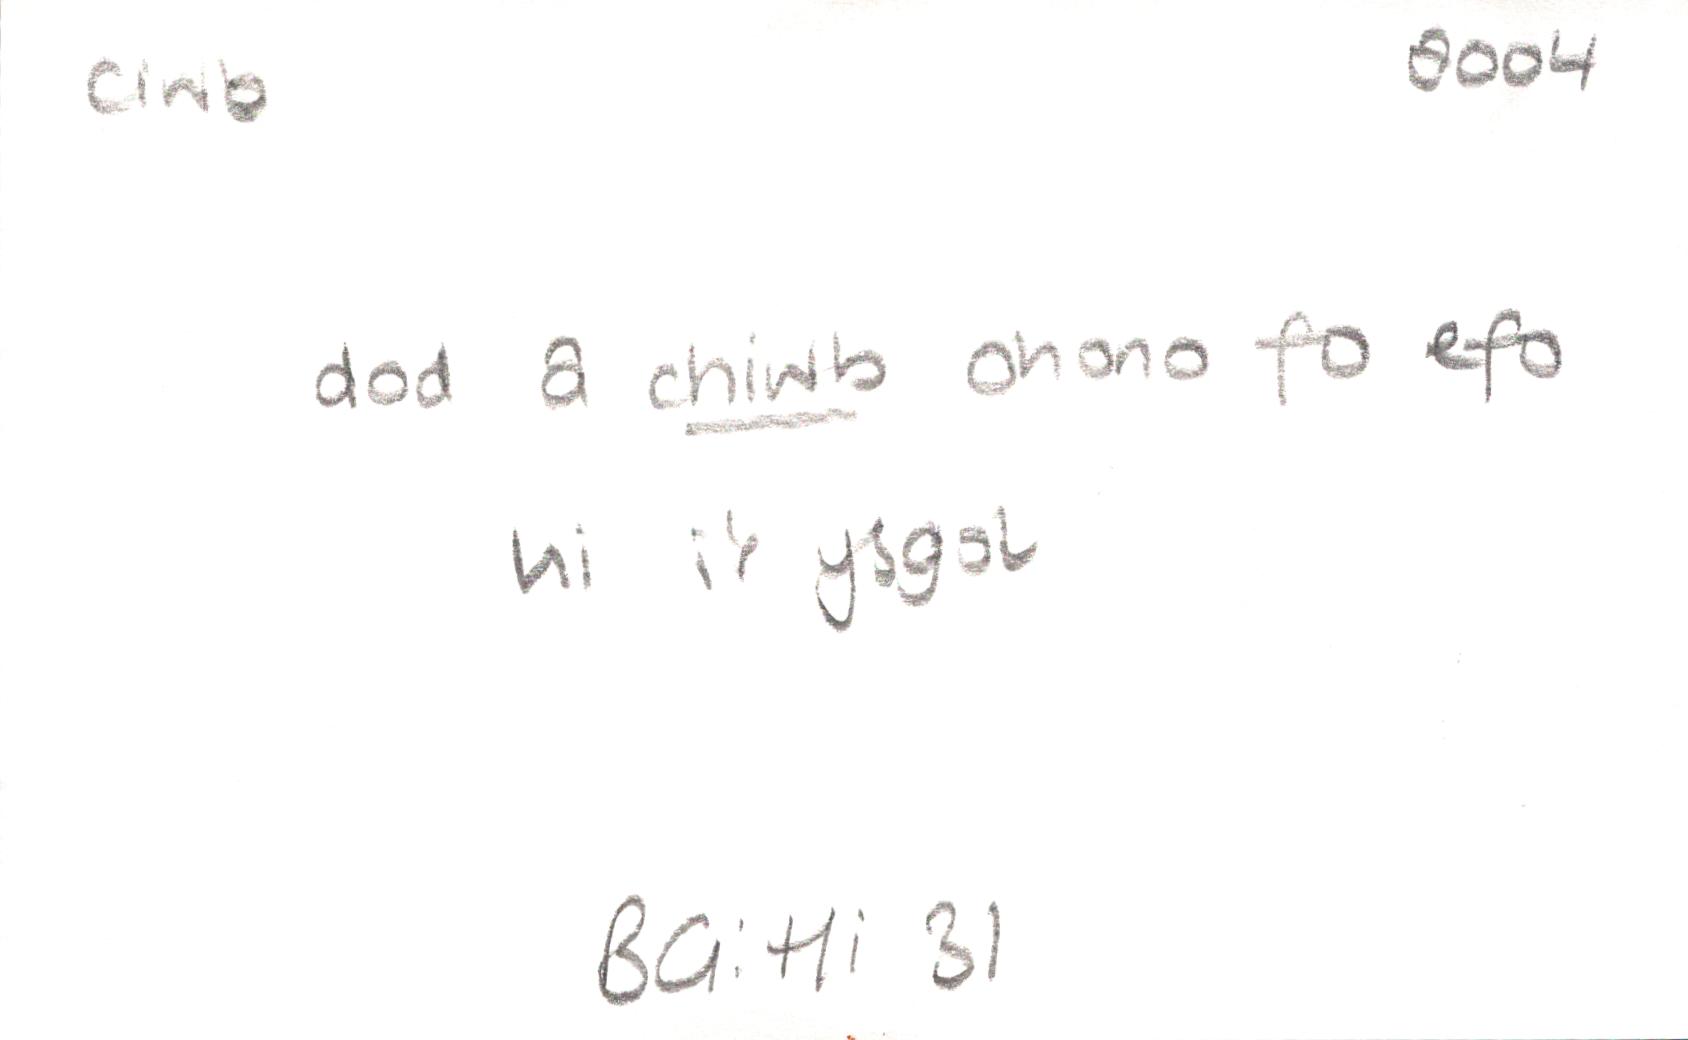 ciwb 8004
dod a chiwb ohono fo efo
hi i'r ysgol
BG: Hi 31